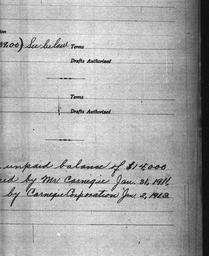 ion
000.00) See below Terms
Drafts Authorized
Terms
Drafts Authorized
unpaid balance of $14,000
by Mr Carnegie Jan. 31, 1911,
by Carnegie Corporation Jan. 2, 1913